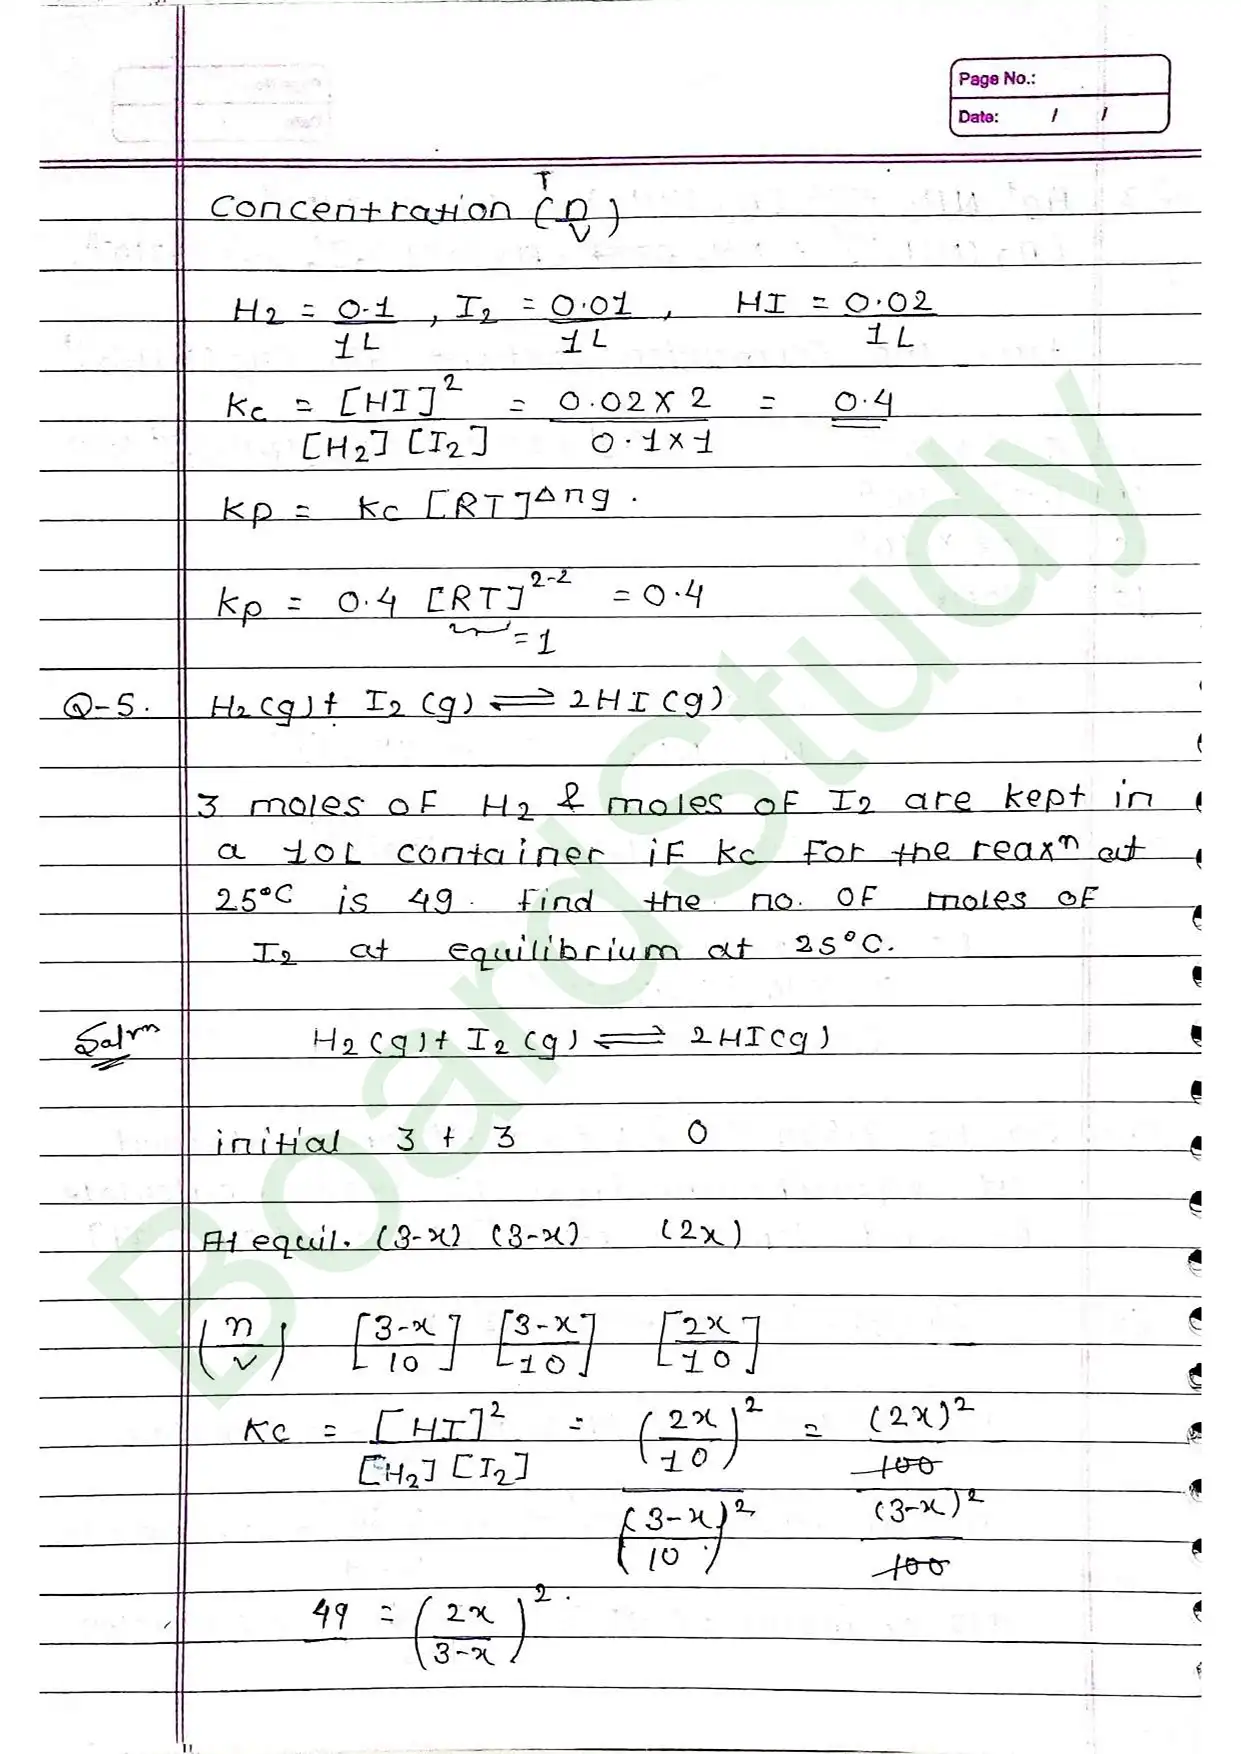 Page No.:
Date: / /
Concentration (n/V)
T
H2 = 0.1/1L , I2 = 0.01/1L , HI = 0.02/1L
Kc = [HI]²/[H2] [I2] = 0.02 X 2/0.1 x 1 = 0.4
Kp = Kc [RT]Δng .
Kp = 0.4 [RT]²⁻² = 0.4
= 1
Q-5. H2(g) + I2 (g) ⇌ 2HI (g)
3 moles of H2 & moles of I2 are kept in
a 10L container if Kc for the reaxⁿ at
25°C is 49. find the no. of moles of
I2 at equilibrium at 25°C.
Solⁿ H2(g) + I2 (g) ⇌ 2HI(g)
initial 3 + 3 0
At equil. (3-x) (3-x) (2x)
(n/v) [3-x/10] [3-x/10] [2x/10]
Kc = [HI]²/[H2] [I2] = (2x/10)²/(3-x/10)² = (2x)²/100/(3-x)²/100
49 = (2x/3-x)².
BoardStudy